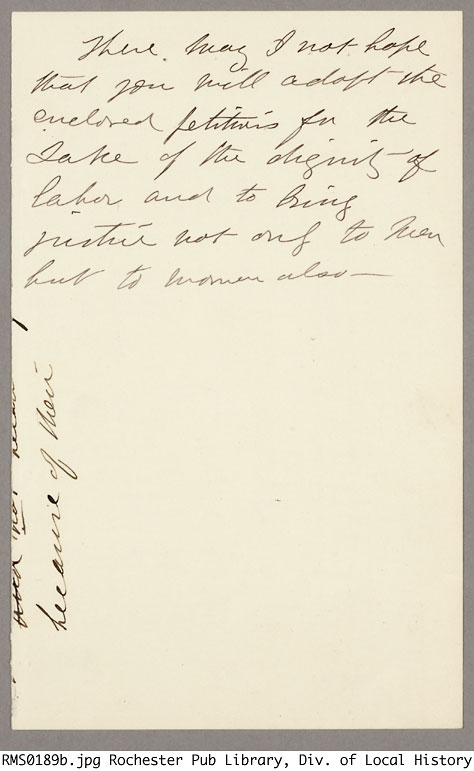 There. May I not hope
that you will adopt the
enclosed petitions for the
Sake of the dignity of
labor and to bring
justice not only to men
but to women also—
because of their
not
RMS0189b.jpg Rochester Pub Library, Div. of Local History